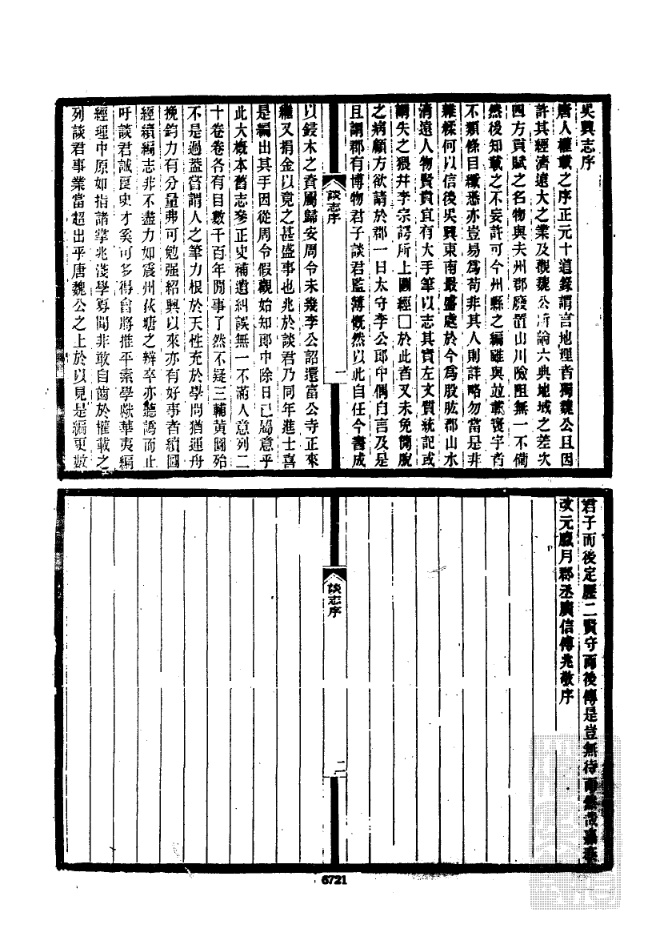 吳興志序
唐人權載之序正元十道錄謂言地理者獨魏公且因
許其經濟遠大之業及觀魏公所論六典地域之差次
四方貢賦之名物與夫州郡廢置山川險阻無一不備
然後知載之不妄許可今州縣之編雖與竝載寰宇者
不類條目纖悉亦豈易爲苟非其人則詳略勿當是非
雜糅何以信後吳興東南最盛處於今爲股肱郡山水
淸遠人物賢貴宜有大手筆以志其實左文質統記或
謂失之猥幷李宗諤所上圖經□於此者又未免簡脫
之病顧方欲請於郡一日太守李公郎中偶自言及是
且謂郡有博物君子談君監簿慨然以此自任今書成
談志序
一
以鋟木之資屬歸安周令未幾李公詔還富公寺正來
繼又捐金以竟之甚盛事也兆於談君乃同年進士喜
是編出其手因從周令假觀始知郎中除日已屬意乎
此大槪本舊志參正史補遺糾誤無一不滿人意列二
十卷卷各有目數千百年閒事了然不疑三輔黃圖殆
不是過蓋嘗謂人之筆力根於天性充於學問猶運舟
挽鈞力有分量弗可勉强紹興以來亦有好事者續圖
經續編志非不盡力如震州荻塘之辨卒亦聽譌而止
吁談君誠良史才奚可多得會將推平素學燬華夷編
經理中原如指諸掌兆淺學寡聞非敢自齒於權載之
列談君事業當超出乎唐魏公之上於以見是編更數
君子而後定歷二賢守而後傳是豈無待而然哉嘉泰
改元臘月郡丞廣信傅兆敬序
談志序
二
6721